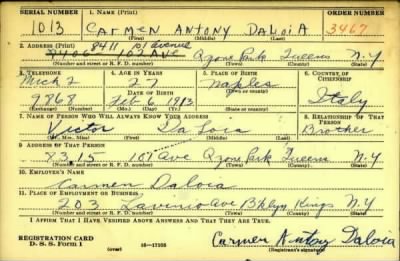 SERIAL NUMBER 1. NAME (Print) ORDER NUMBER
1013 CARMEN ANTONY DALOIA 3467
(First) (Middle) (Last)
2. ADDRESS (Print) 8411 101 avenue
107 AVE Ozone Park Queens N.Y
(Number and street or R. F. D. number) (Town) (County) (State)
3. TELEPHONE 4. AGE IN YEARS 5. PLACE OF BIRTH 6. COUNTRY OF CITIZENSHIP
Mich 2 27 Naples
DATE OF BIRTH
9868 Feb 6 1913 Italy
(Exchange) (Number) (Mo.) (Day) (Yr.) (Town or county) (State or country)
7. NAME OF PERSON WHO WILL ALWAYS KNOW YOUR ADDRESS 8. RELATIONSHIP OF THAT PERSON
Victor DaLoia Brother
(Mr., Mrs., Miss) (First) (Middle) (Last)
9. ADDRESS OF THAT PERSON
8315 107 Ave Ozone Park Queens N.Y
(Number and street or R. F. D. number) (Town) (County) (State)
10. EMPLOYER'S NAME
Carmen Daloia
11. PLACE OF EMPLOYMENT OR BUSINESS
203 Ave Bklyn Kings N.Y
(Number and street or R. F. D. number) (Town) (County) (State)
I AFFIRM THAT I HAVE VERIFIED ABOVE ANSWERS AND THAT THEY ARE TRUE.
REGISTRATION CARD
D. S. S. FORM 1 (over) 16—17105 Carmen Antony Daloia
(Registrant's signature)